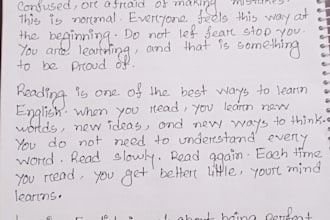 confused, or afraid of making mistakes.
This is normal. Everyone feels this way at
the beginning. Do not lef fear stop you.
You are learning, and that is something
to be proud of.
Reading is one of the best ways to learn
English. when you read, you learn new
words, new ideas, and new ways to think.
You do not need to understand every
word. Read slowly. Read again. Each time
you read, you get better little, your mind
learns.
about being perfect